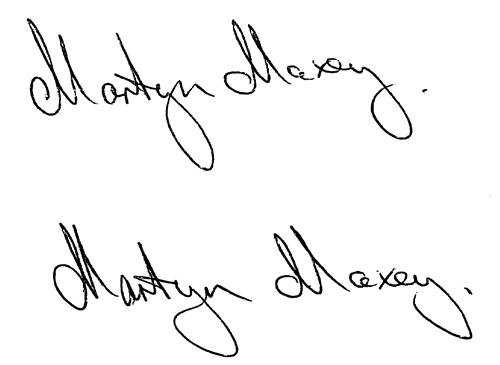 Martyn Maxey.
Martyn Maxey.